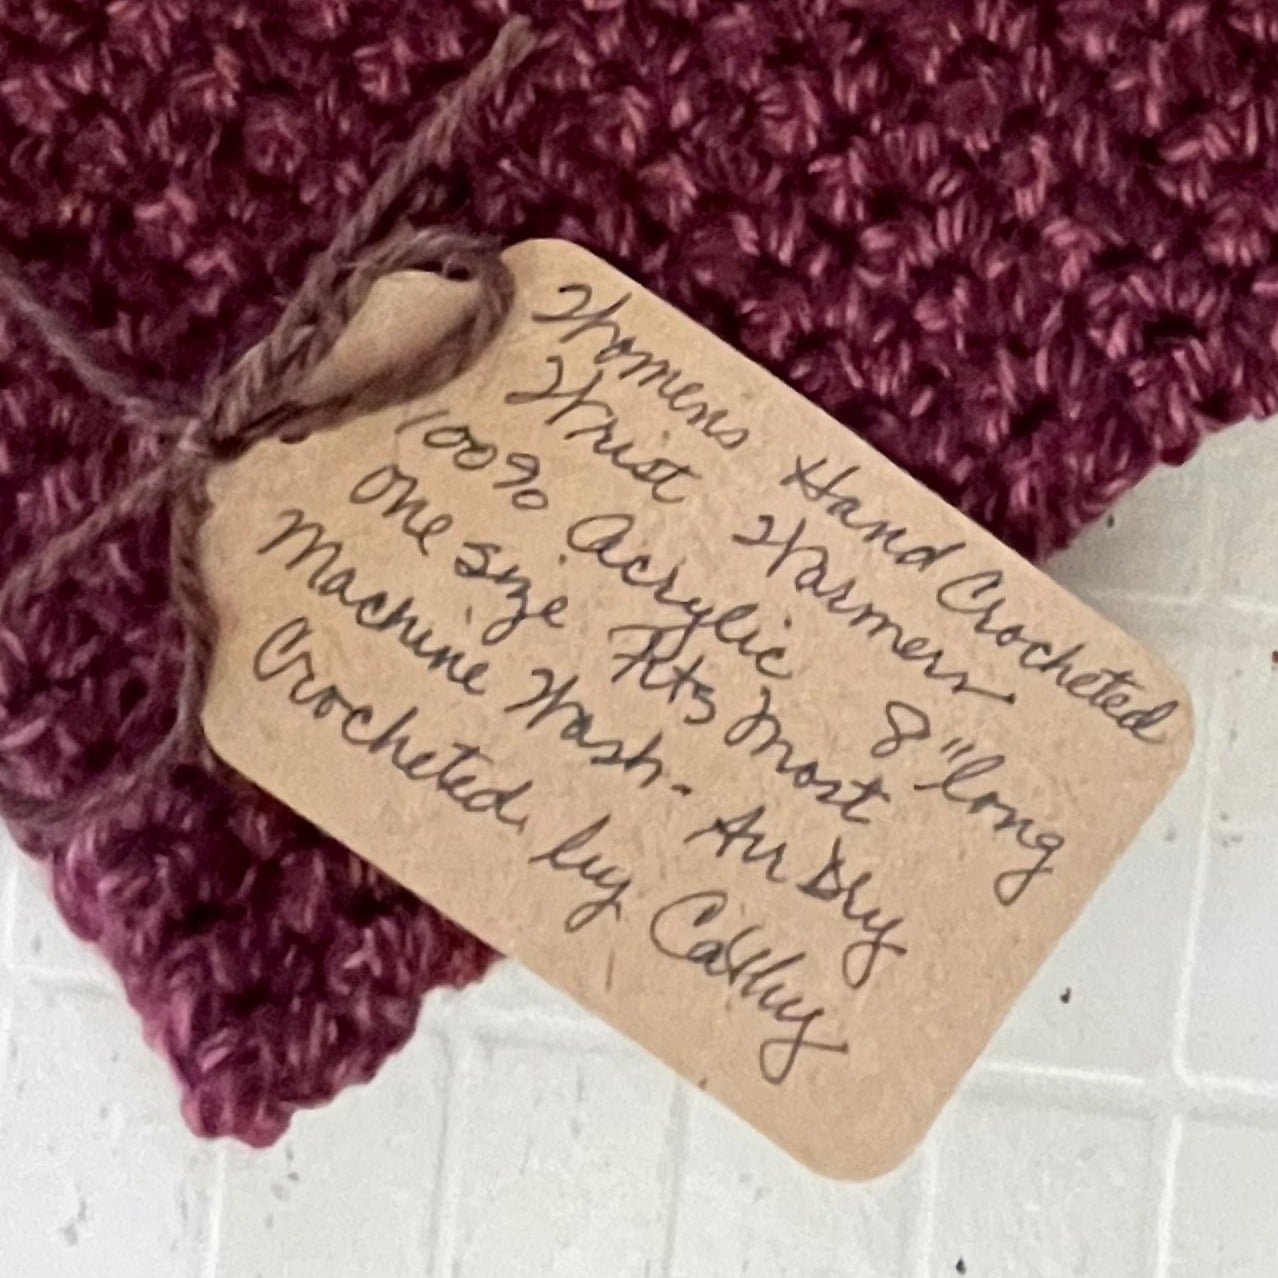 Womens Hand Crocheted
Wrist Warmers
100% Acrylic 8" long
One size Fits Most
Machine Wash - Air Dry
Crocheted by Cathy